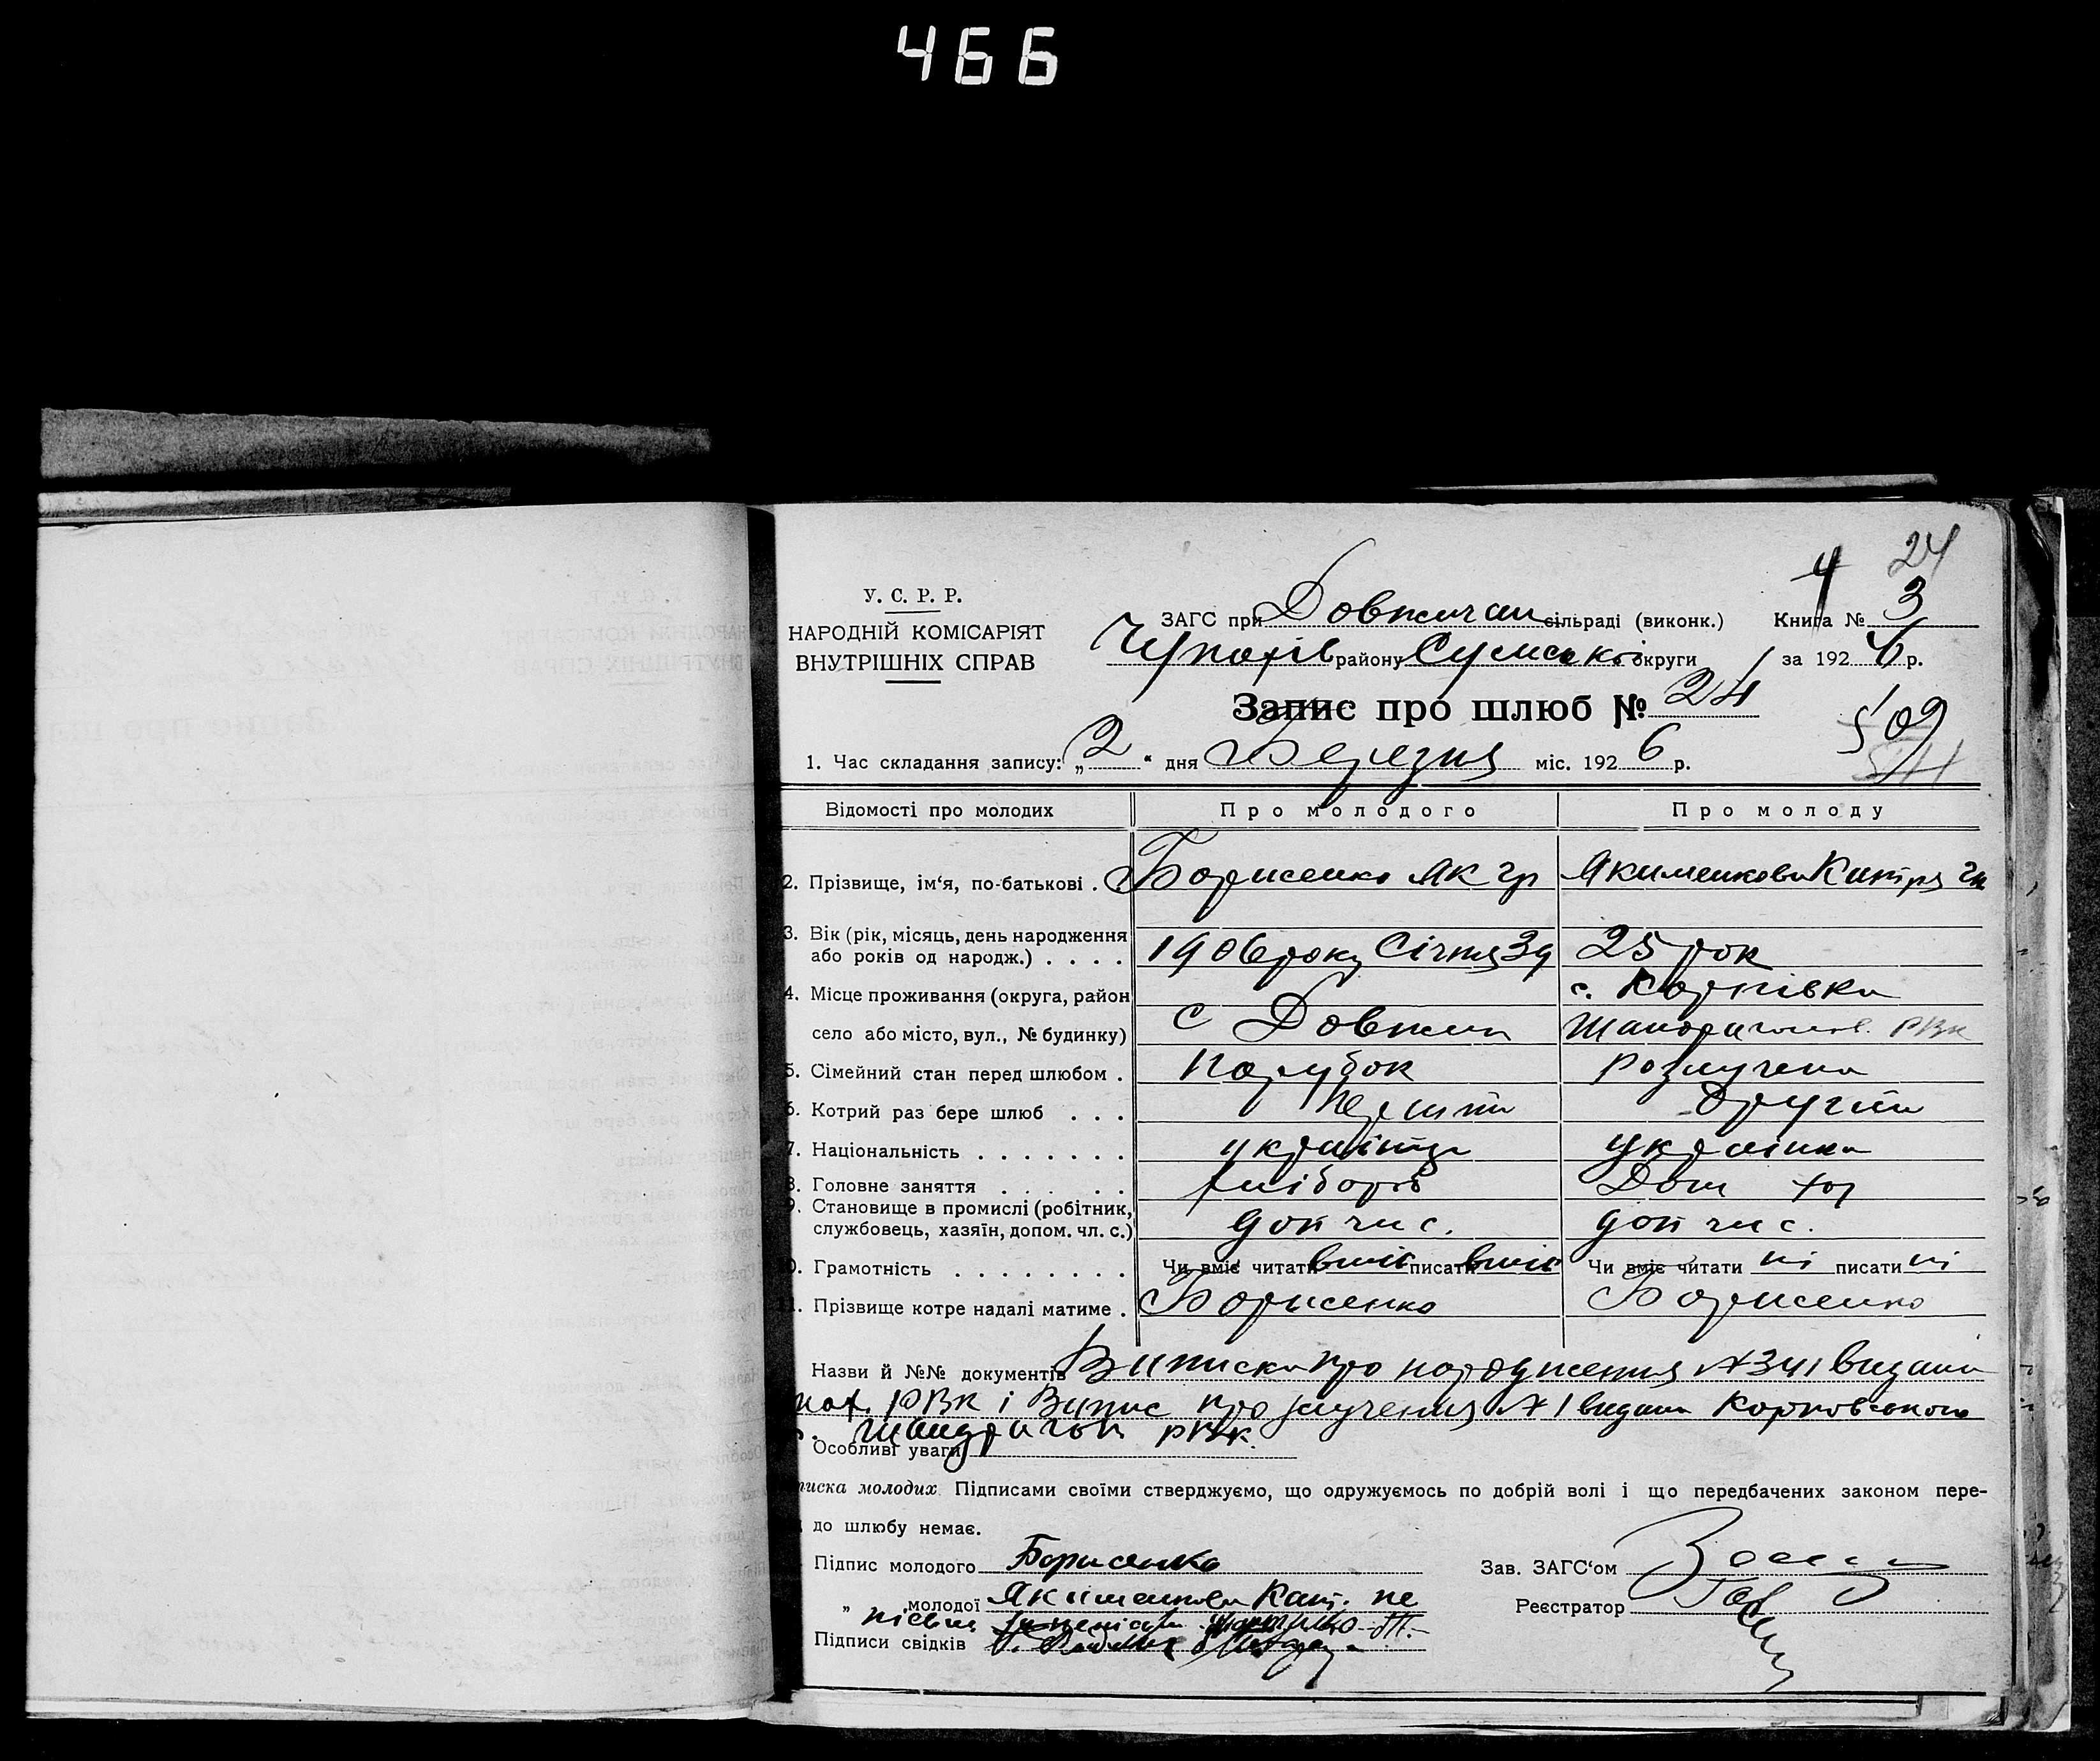 466
24
4
У. С. Р. Р.
НАРОДНІЙ КОМІСАРІЯТ
ВНУТРІШНІХ СПРАВ
ЗАГС при Довжичан сільраді (виконк.) Книга № 3
Чупахів району Сумської округи за 1926 р.
Запис про шлюб № 24
509
1. Час складання запису: „2“ дня Березня міс. 1926 р.
Відомості про молодих Про молодого Про молоду
2. Прізвище, ім‘я, по-батькові . Борисенко Як Гр Якименкова Катря
3. Вік (рік, місяць, день народження
або років од народж.) . . . . 1906 року Січня 3д 25 рок
4. Місце проживання (округа, район с. Корнівка
село або місто, вул., № будинку) с Довжик РВК
5. Сімейний стан перед шлюбом . Парубок розлучена
6. Котрий раз бере шлюб . . . Перший другий
7. Національність . . . . . . . українець українка
8. Головне заняття . . . . . . хлібороб Дом хоз
9. Становище в промислі (робітник,
службовець, хазяїн, допом. чл. с.) доп чл с. доп чл с.
0. Грамотність . . . . . . . . Чи вміє читати вміє писати вміє Чи вміє читати ні писати ні
11. Прізвище котре надалі матиме . Борисенко Борисенко
Назви й №№ документів Виписка про народження № 341 видана
РВК і Випис про злучення № 1 видана
РВК.
Особливі уваги
писка молодих Підписами своїми стверджуємо, що одружуємось по добрій волі і що передбачених законом пере-
до шлюбу немає.
Підпис молодого Борисенко Зав. ЗАГС‘ом
„ молодої Якименкова Кат. не Реєстратор
Підписи свідків